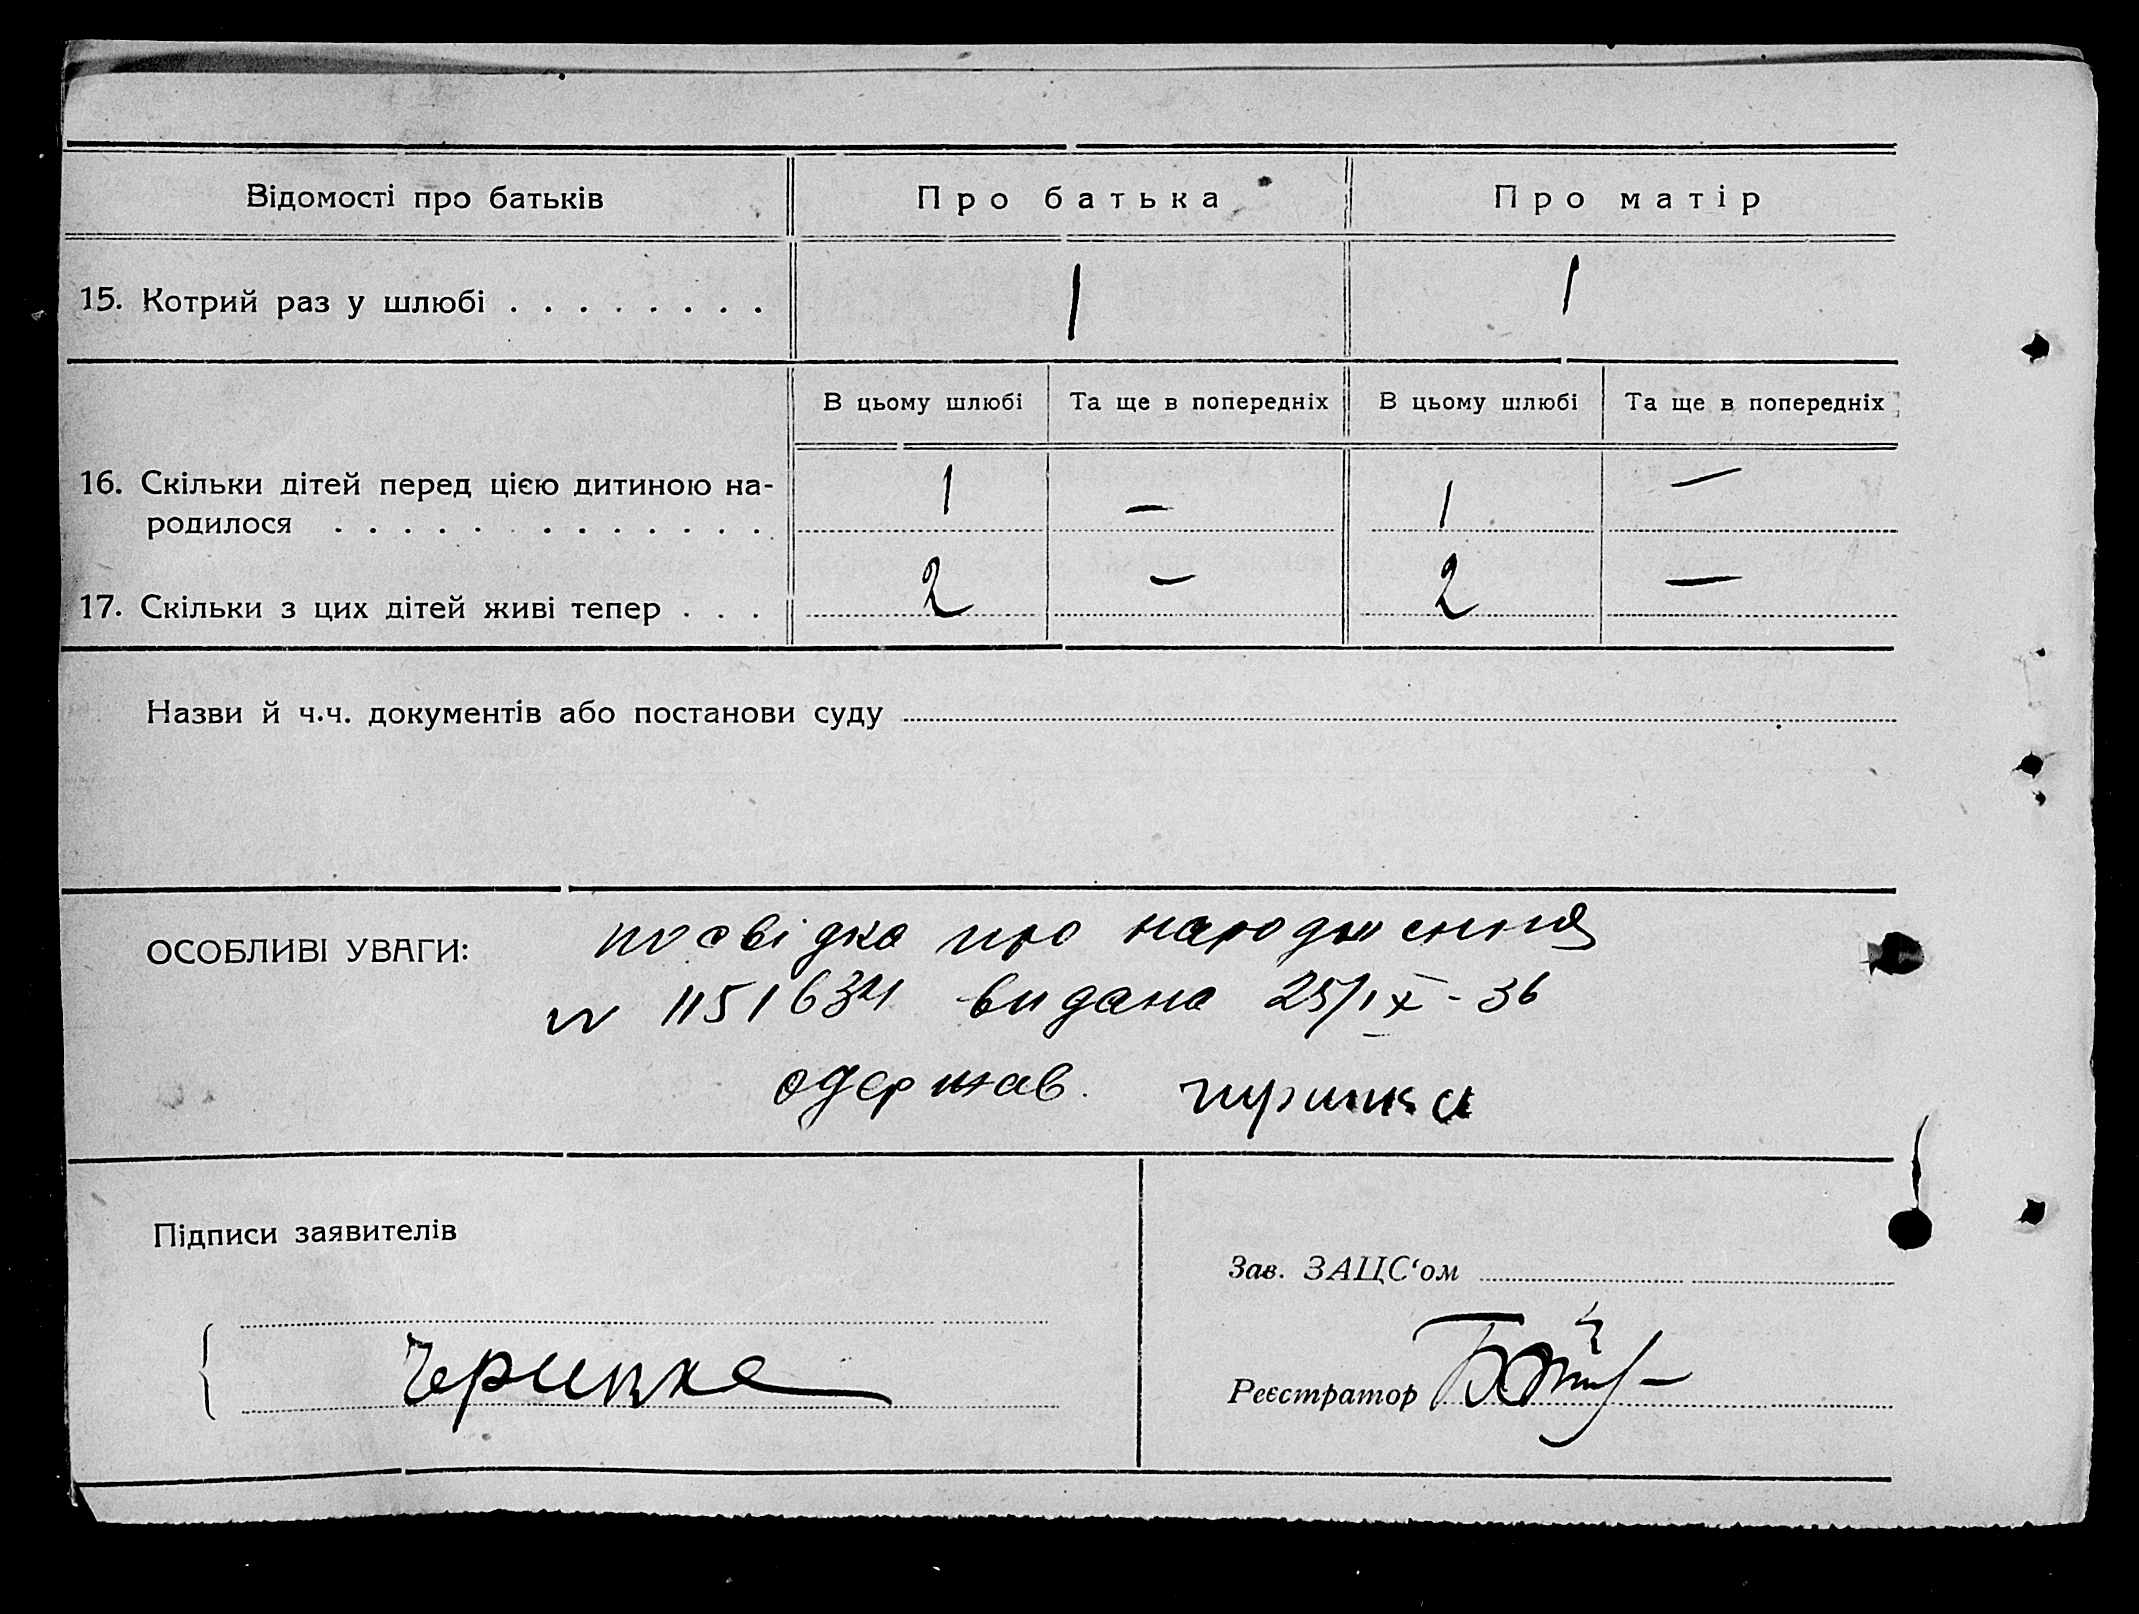 Відомості про батьків Про батька Про матір
15. Котрий раз у шлюбі . . . . . . . . 1 1
В цьому шлюбі Та ще в попередніх В цьому шлюбі Та ще в попередніх
16. Скільки дітей перед цією дитиною на-
родилося . . . . . . . . . . . . . 1 — 1 —
17. Скільки з цих дітей живі тепер . . . 2 — 2 —
Назви й ч.ч. документів або постанови суду
ОСОБЛИВІ УВАГИ: посвідка про народження
№ 1151634 видана 25/IX - 36
одержав.
Підписи заявителів
Зав. ЗАЦС‘ом
Реєстратор